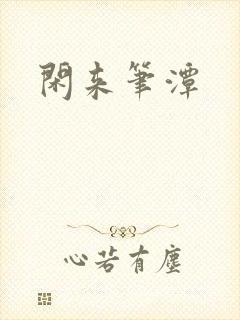 閑来筆潭
心若有塵